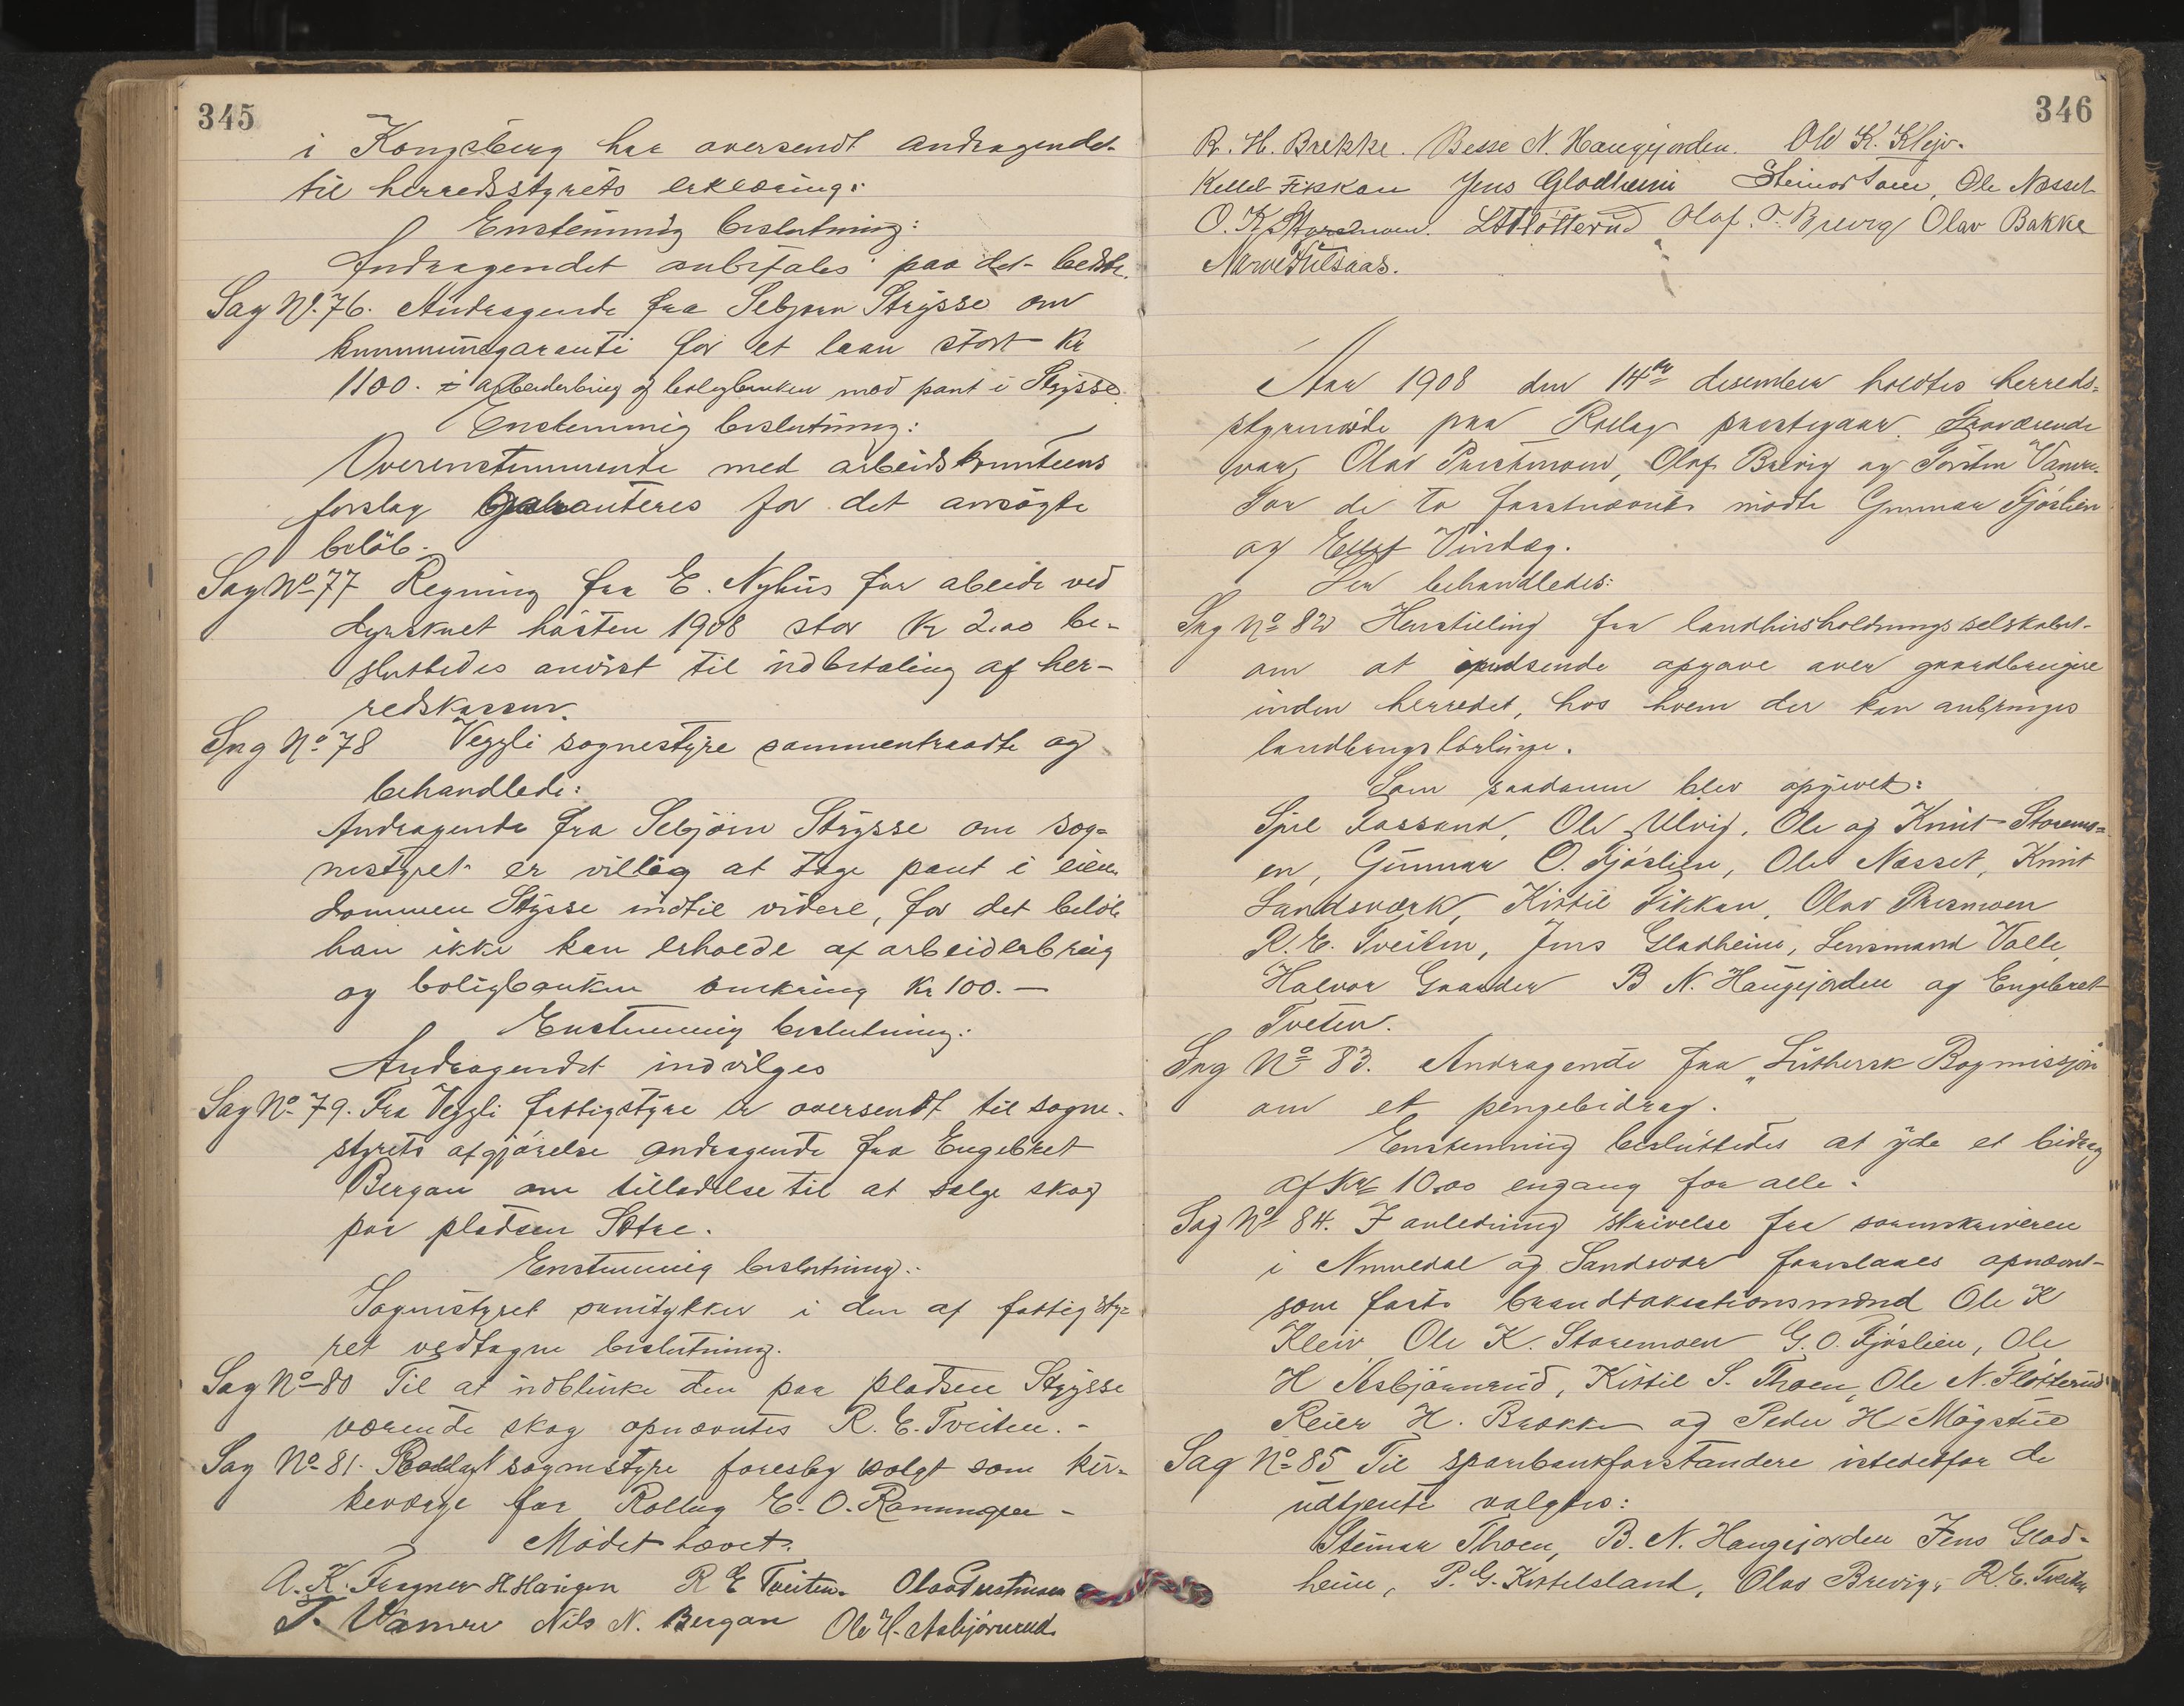 345
i Kongsberg har oversendt andragendet
til herredsstyrets erklæring.
Enstemmig beslutning:
Andragendet anbefales paa det bedste.
Sag No. 76. Andragende fra Sebjørn Strysse om
kommunegaranti for et laan stort Kr
1100. i arbeiderbrug og boligbanken mod pant i Strysse.
Enstemmig beslutning:
Overenstemmende med arbeidskomiteens
forslag garanteres for det ansøgte
beløb.
Sag No 77 Regning fra E. Nyhus for abeide ved
dyrskuet høsten 1908 stor Kr 2.00 be-
sluttedes anvist til indbetaling af her-
redskassen.
Sag No 78 Veggli sognestyre sammentraadte og
behandlede:
Andragende fra Sebjörn Strysse om sog-
nestyret er villig at tage pant i eien-
dommen Stysse indtil videre, for det beløb
han ikke kan erholde af arbeiderbrug
og boligbanken omkring Kr 100.—
Enstemmig beslutning:
Andragendet indvilges
Sag No 79. Fra Veggli fattigstyre er oversendt til sogne-
styrets afgjørelse andragende fra Engebret
Bergan om tilladelse til at sælge skog
paa pladsen Sætre.
Enstemmig beslutning:
Sognestyret samtykker i den af fattigsty-
ret vedtagne beslutning.
Sag No 80 Til at indblinke den paa pladsen Strysse
værende skog opnævntes R. E. Tveiten.-
Sag No 81. Rollag sognestyre foreslog valgt som kir-
keværge for Rollag E. O. Ramungen -
Mødet hævet.
A. K. Fragner H. Haugen R E Tveiten. Olav Præstmoen
T. Vamen Nils N. Bergan Ole H. Asbjørnrud.
346
R. H. Brekke. Besse N. Haugejorden. Ole K. Klejv.
Kittil Fikkan Jens Gladheim Steinar Toen, Ole Næsset
O. K. Storemoen. Slötterud Olaf. T. Brevig Olav Bakke
Narve Tulsaas.
Aar 1908 den 14de desember holdtes herreds-
styremøde paa Rollag præstegaar. Fraværende
var Olav Præstmoen, Olaf Brevig og Torsten Vamen.
For de to førstnævnte mødte Gunnar Fjöslien
og Ellef Vindeg.
Der behandledes:
Sag No 82 Henstilling fra landhusholdningsselskabet
om at indsende opgave over gaardbrugere
inden herredet, hos hvem der kan anbringes
landbrugslærlinge.
Som saadanne blev opgivet:
Sjul Kassand, Ole Ulvig, Ole og Knut Storemo-
en, Gunnar O. Fjöslien, Ole Næsset, Knut
Landsværk, Kittil Fikkan, Olav Præsmoen
R. E. Tveiten, Jens Gladheim, Lensmand Valle,
Halvor Gaarder B N. Haugejorden og Engebret
Tveten.
Sag No 83. Andragende fra "Luthersk Bogmissjon"
om et pengebidrag.
Enstemmig besluttedes at yde et bidrag
af Kr 10.00 engang for alle.
Sag No 84. I anledning skrivelse fra sorenskriveren
i Numedal og Sandsvær foreslaaes opnævnt
som faste brandtakstionsmænd Ole K
Kleiv, Ole K. Storemoen G. O. Fjöslien, Ole
H Asbjørnrud, Kittil S. Thoen, Ole N. Slötterud
Reier H. Brække og Peder H. Mögstue
Sag No 85 Til sparebankforstandere istedetfor de
udtjente valgtes:
Steinar Thoen, B. N. Haugejorden Jens Glad-
heim, P. G. Kittelsland, Olav Brevig, R. E. Tveiten